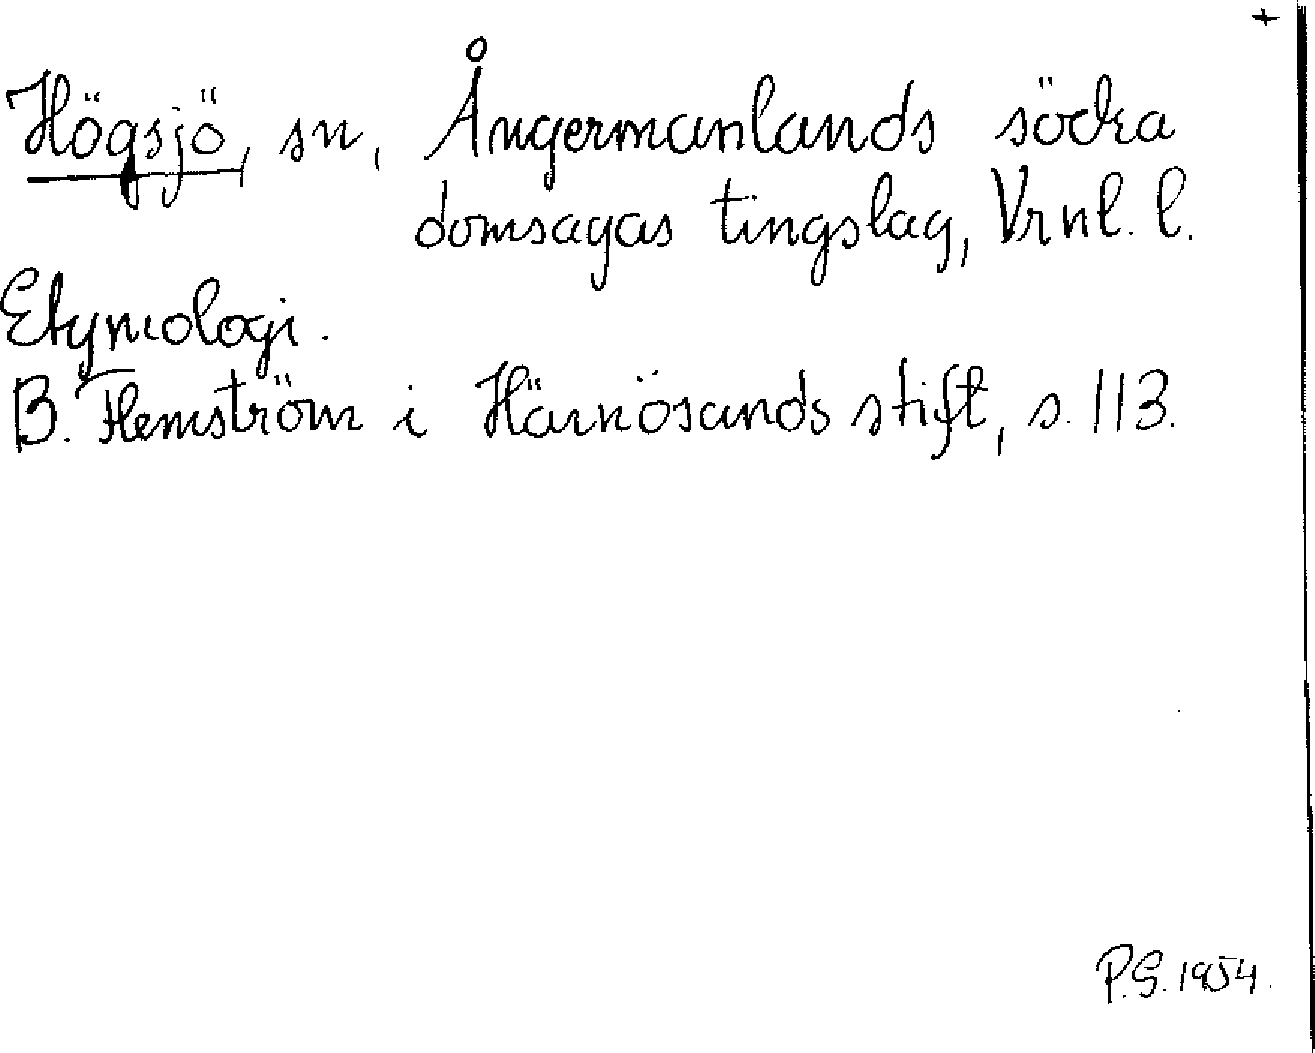 +
Högsjö, sn, Ångermanlands södra
domsagas tingslag, Vrnl. l.
Etymologi.
B. Flemström i Härnösands stift, s. 113.
P.G. 1954.